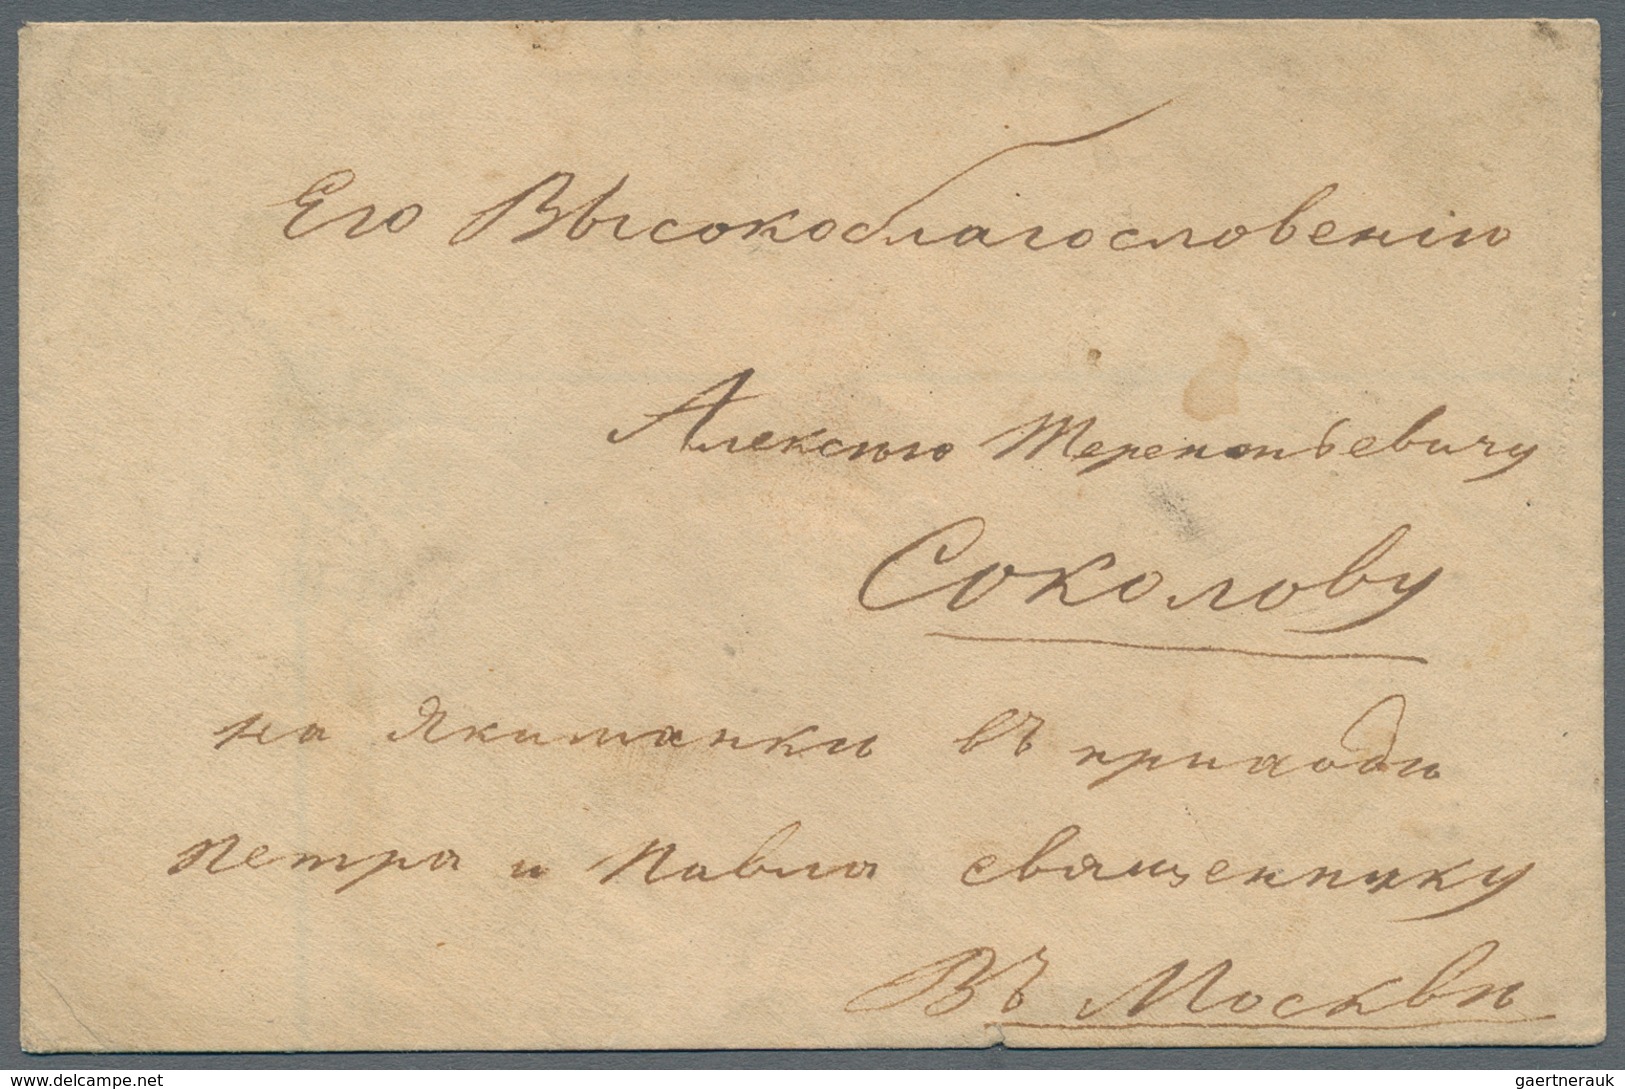 Его Высокоблагословенію
Алексѣю Терентьевичу
Соколову
на Якиманки въ приходѣ
Петра и Павла священнику
Въ Москвѣ
www.delcampe.net
gaertnerauk